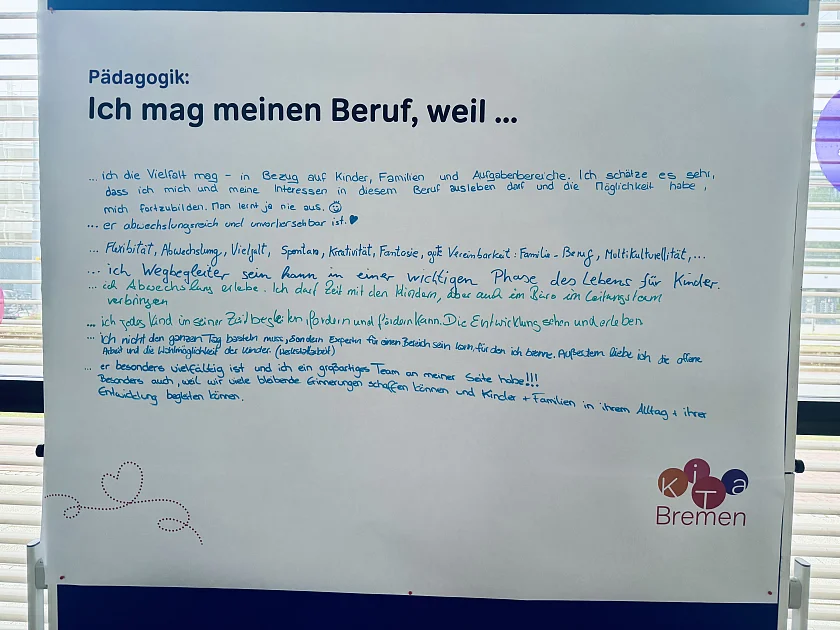 Pädagogik:
Ich mag meinen Beruf, weil ...
... ich die Vielfalt mag - in Bezug auf Kinder, Familien und Aufgabenbereiche. Ich schätze es sehr,
dass ich mich und meine Interessen in diesem Beruf ausleben darf und die Möglichkeit habe,
mich fortzubilden. Man lernt ja nie aus. ☺
... er abwechslungsreich und unvorhersehbar ist. ♥
... Flexibität, Abwechslung, Vielfalt, Spontan, Kreativität, Fantasie, gute Vereinbarkeit: Familie - Beruf, Multikulturellität, ...
... ich Wegbegleiter sein kann in einer wichtigen Phase des Lebens für Kinder.
... ich Abwechslung erlebe. Ich darf Zeit mit den Kindern, aber auch im Büro im Leitungsteam
verbringen
... ich jedes Kind in seiner Zeit begleiten, fordern und fördern kann. Die Entwicklung sehen und erleben
... ich nicht den ganzen Tag basteln muss, sondern Expertin für einen Bereich sein kann, für den ich brenne. Außerdem liebe ich die offene
Arbeit und die Wahlmöglichkeit der Kinder. (Werkstattarbeit)
... er besonders vielfältig ist und ich ein großartiges Team an meiner Seite habe!!!
Besonders auch, weil wir viele bleibende Erinnerungen schaffen können und Kinder + Familien in ihrem Alltag + ihrer
Entwicklung begleiten können.
KiTa
Bremen